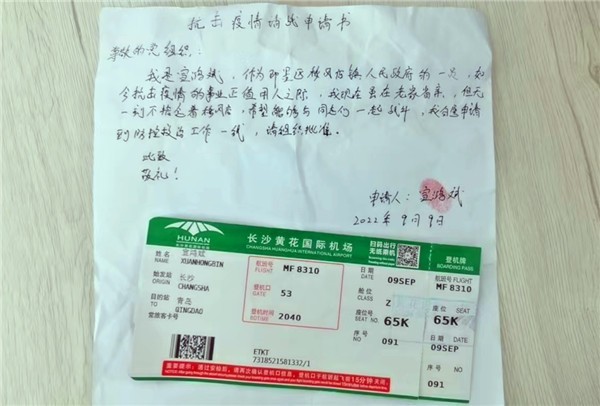 抗击疫情请战申请书
尊敬的党组织：
我是宣鸿斌，作为即墨区移风店镇人民政府的一员，如
今抗击疫情的事业正值用人之际，我现在虽在老家省亲，但无
一刻不惦念着移风店，希望能够与同志们一起战斗，我自愿申请
到防控疫情工作一线，请组织批准。
此致
敬礼！
申请人：宣鸿斌
2022年9月9日
HUNAN
长沙黄花国际机场
CHANGSHA HUANGHUA INTERNATIONAL AIRPORT
扫码出行
无纸乘机
登机牌
BOARDING PASS
姓名 宣鸿斌
NAME XUANHONGBIN
始发站 长沙
ORIGIN CHANGSHA
目的站 青岛
TO QINGDAO
常旅客卡号
航班号
FLIGHT MF 8310
登机口
GATE 53
登机时间
BDTIME 2040
日期
DATE 09SEP
舱位
CLASS Z
座位号
SEAT NO. 65K
序号
NO. 091
航班号 FLIGHT
MF 8310
座位号
SEAT NO.
65K
日期 DATE
09SEP
序号 NO.
091
ETKT
7318521581332/1
重要提示：通过安检后，请再次确认登机口信息，登机口于航班起飞前15分钟关闭。